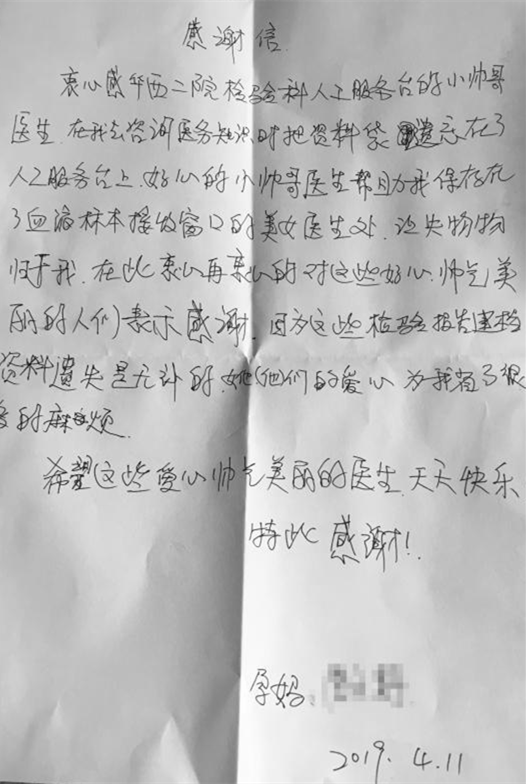 感谢信
衷心感华西二院检验科人工服务台的小帅哥
医生.在我去咨询医务知识时把资料袋遗忘在了
人工服务台上.好心的小帅哥医生帮助我保存在
了血液标本接收窗口的美女医生处.让失物物
归于我.在此衷心再衷心的对这些好心.帅气美
丽的人们表示感谢.因为这些检验报告建档
资料遗失是无计的.她(他)们的爱心为我省了很
多的麻烦.
希望这些爱心帅气美丽的医生.天天快乐
特此感谢!
孕妈:
2019.4.11